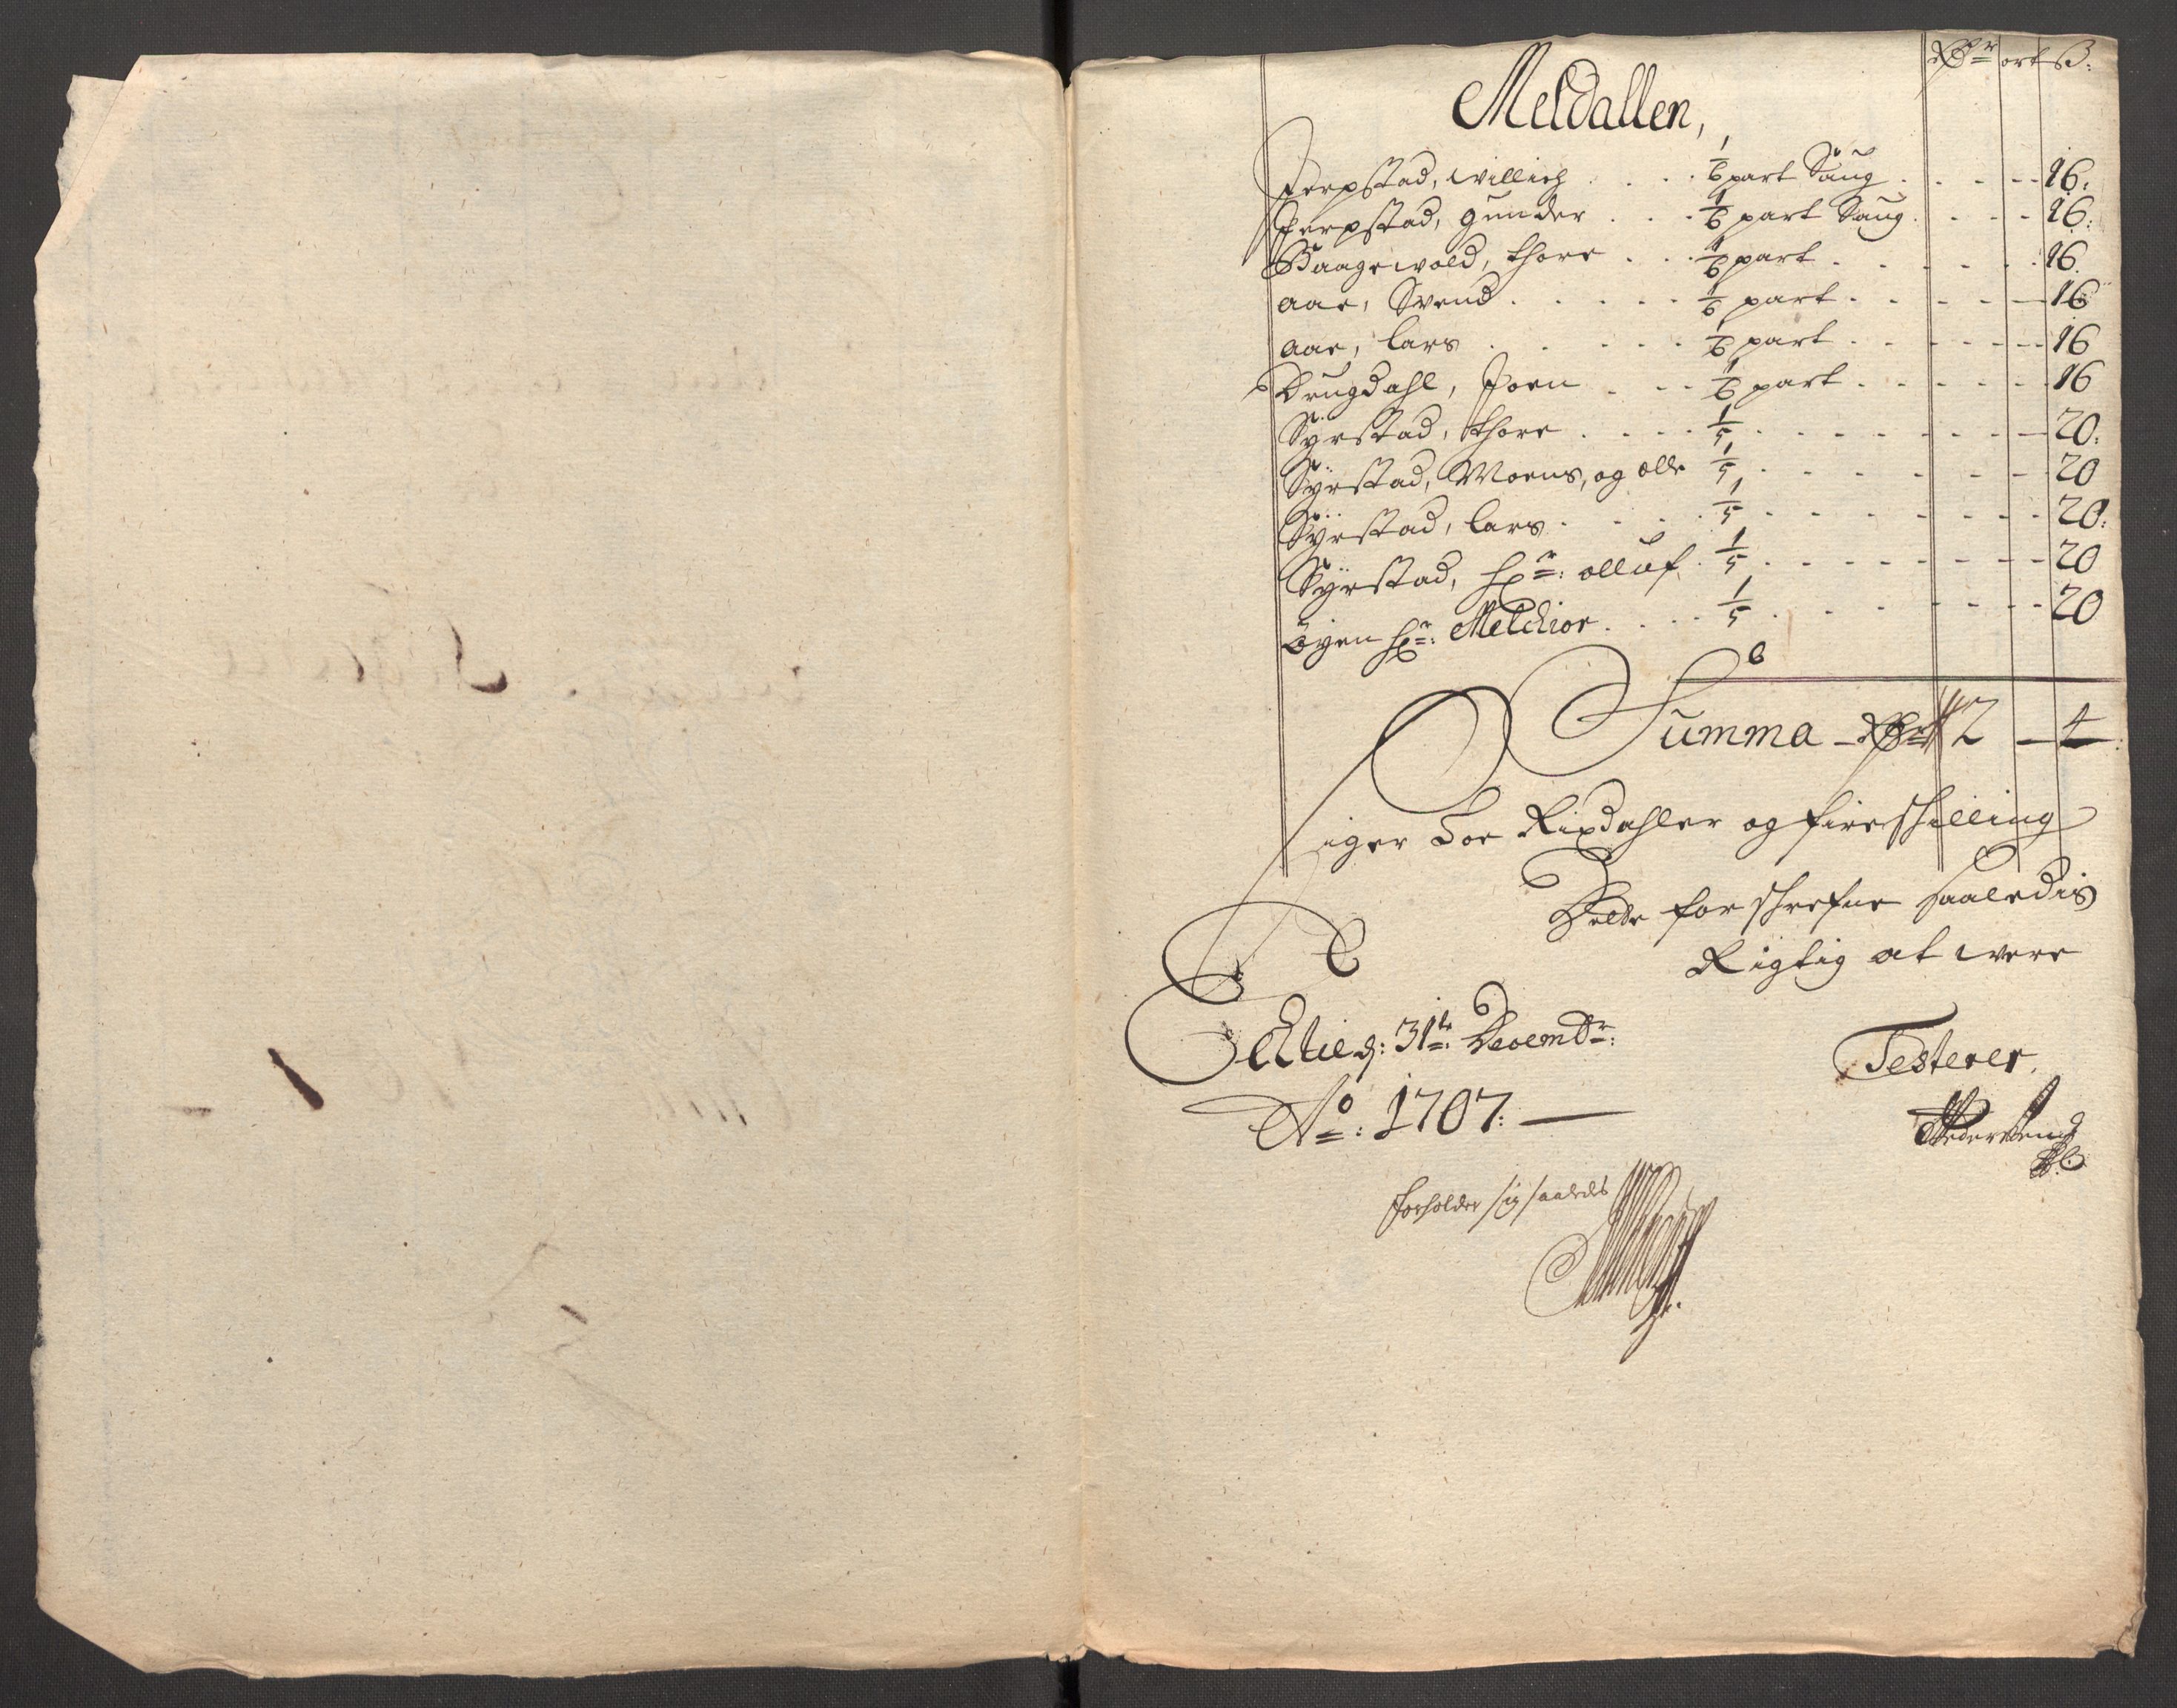 Rdr ort ß:
Meldallen,
Jerpstad, Willich . . . 1/6 part Saug . . . . 16:
Jerpstad, Gunder . . . 1/6 part Saug . . . 16:
Baagewold, Thore . . . 1/6 part . . . . . 16.
Aae, Svend . . . . . 1/6 part . . . . 16
Aae, Lars . . . . . 1/6 part . . . . . 16
Drugdahl, Joen . . . 1/6 part . . . . . 16
Syrstad, Thore . . . . 1/5 . . . . . . 20:
Syrstad, Moens, og olle 1/5 . . . . . . 20
Syrstad, Lars . . . . 1/5 . . . . . . 20:
Syrstad, Hr: olluf . 1/5 . . . . . . 20
öyen Hr: Melchior . . . . 1/5 . . . . . . 20
Summa – Rdr 2 – 4:
Siger Toe Rixdahler og fire shilling
Dette forschrefne saaledis
Rigtig at were
Testerer,
31te: Decembr:
Ao: 1707: —
forholder sig saaledes